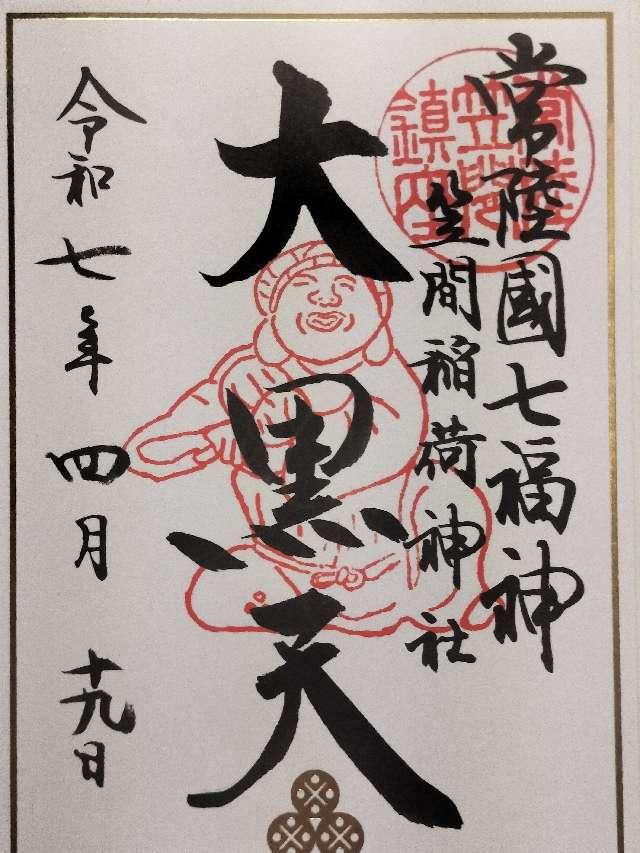 常陸國七福神
笠間稲荷神社
大黒天
令和七年四月十九日
常陸
笠間
鎮座